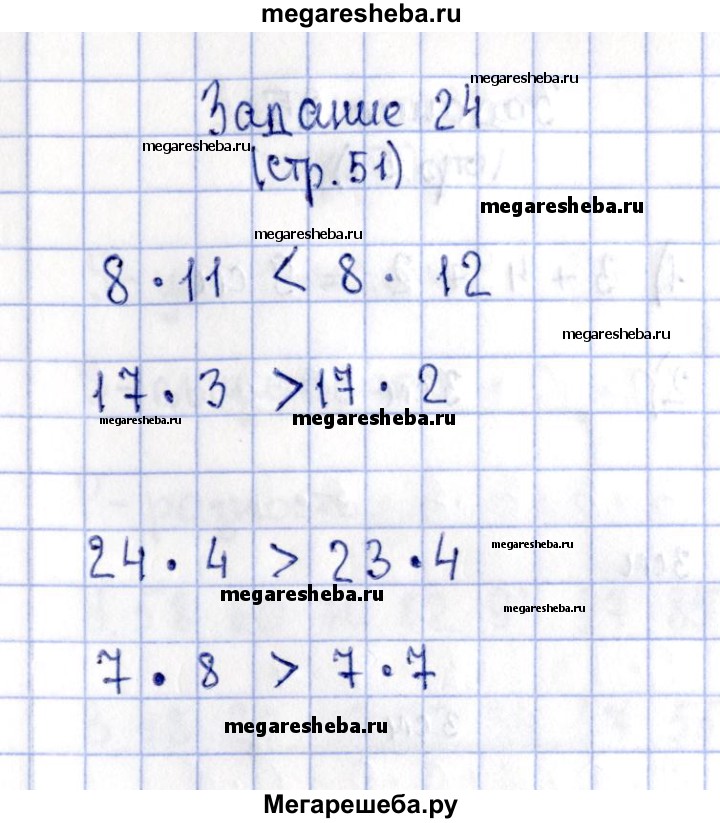 megaresheba.ru
megaresheba.ru
Задание 24
megaresheba.ru
(стр. 51)
megaresheba.ru
megaresheba.ru
8 · 11 < 8 · 12
megaresheba.ru
17 · 3 > 17 · 2
megaresheba.ru
megaresheba.ru
24 · 4 > 23 · 4
megaresheba.ru
megaresheba.ru
megaresheba.ru
7 · 8 > 7 · 7
megaresheba.ru
Мегарешеба.ру